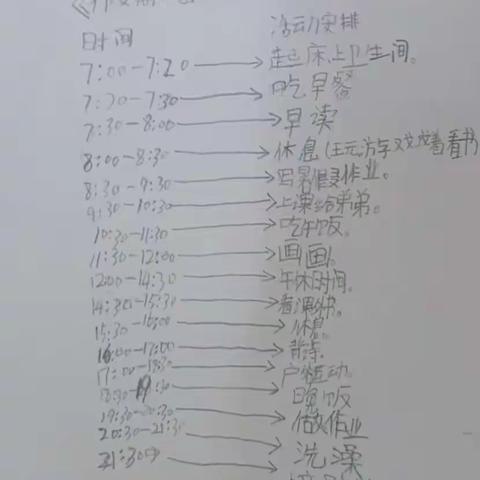 时间 活动安排
7:00-7:20 起床上卫生间。
7:20-7:30 吃早餐
7:30-8:00 早读
8:00-8:30 休息(玩游戏或看书
8:30-9:30 写暑假作业。
9:30-10:30 上课给弟弟。
10:30-11:30 吃午饭。
11:30-12:00 画画。
12:00-14:30 午休时间。
14:30-15:30 看课外书。
15:30-16:00 休息。
16:00-17:00 背诗。
17:00-18:30 户外运动。
18:30-19:30 晚饭
19:30-20:30 做作业
20:30-21:30 洗澡
21:30